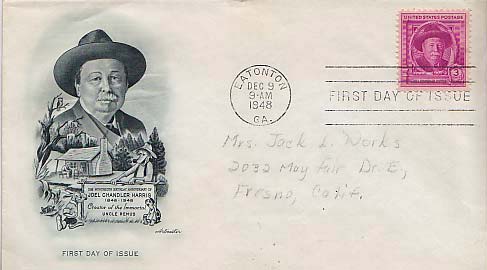 UNITED STATES POSTAGE
3
EATONTON
DEC 9
9-AM
1948
GA.
FIRST DAY OF ISSUE
Mrs. Jack L. Works
2032 May fair Dr. E,
Fresno, Calif.
JOEL CHANDLER HARRIS
1848 - 1948
Creator of the Immortal
UNCLE REMUS
Artmaster
FIRST DAY OF ISSUE